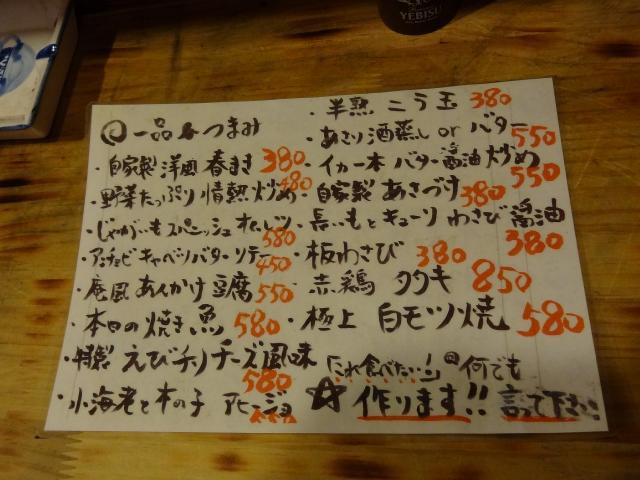 YEBISU
一品 おつまみ
・自家製 洋風 春まき 380
・野菜たっぷり 情熱炒め 480
・じゃがいもスパニッシュオムレツ 580
・アンチョビキャベツバターソテー 450
・庵風 あんかけ 豆腐 550
・本日の焼き魚 580
・特製 えびチリチーズ風味 580
・小海老と木の子 アヒージョ
・半熟 ニラ玉 380
・あさり酒蒸し or バター 550
・イカ一本 バター醤油炒め 550
・自家製 あさづけ 380
・長いもとキューリ わさび醤油 380
・板わさび 380
・赤鶏 タタキ 850
・極上 白モツ焼 580
「これ食べたい!」の何でも
☆ 作ります!! 言って下さい!